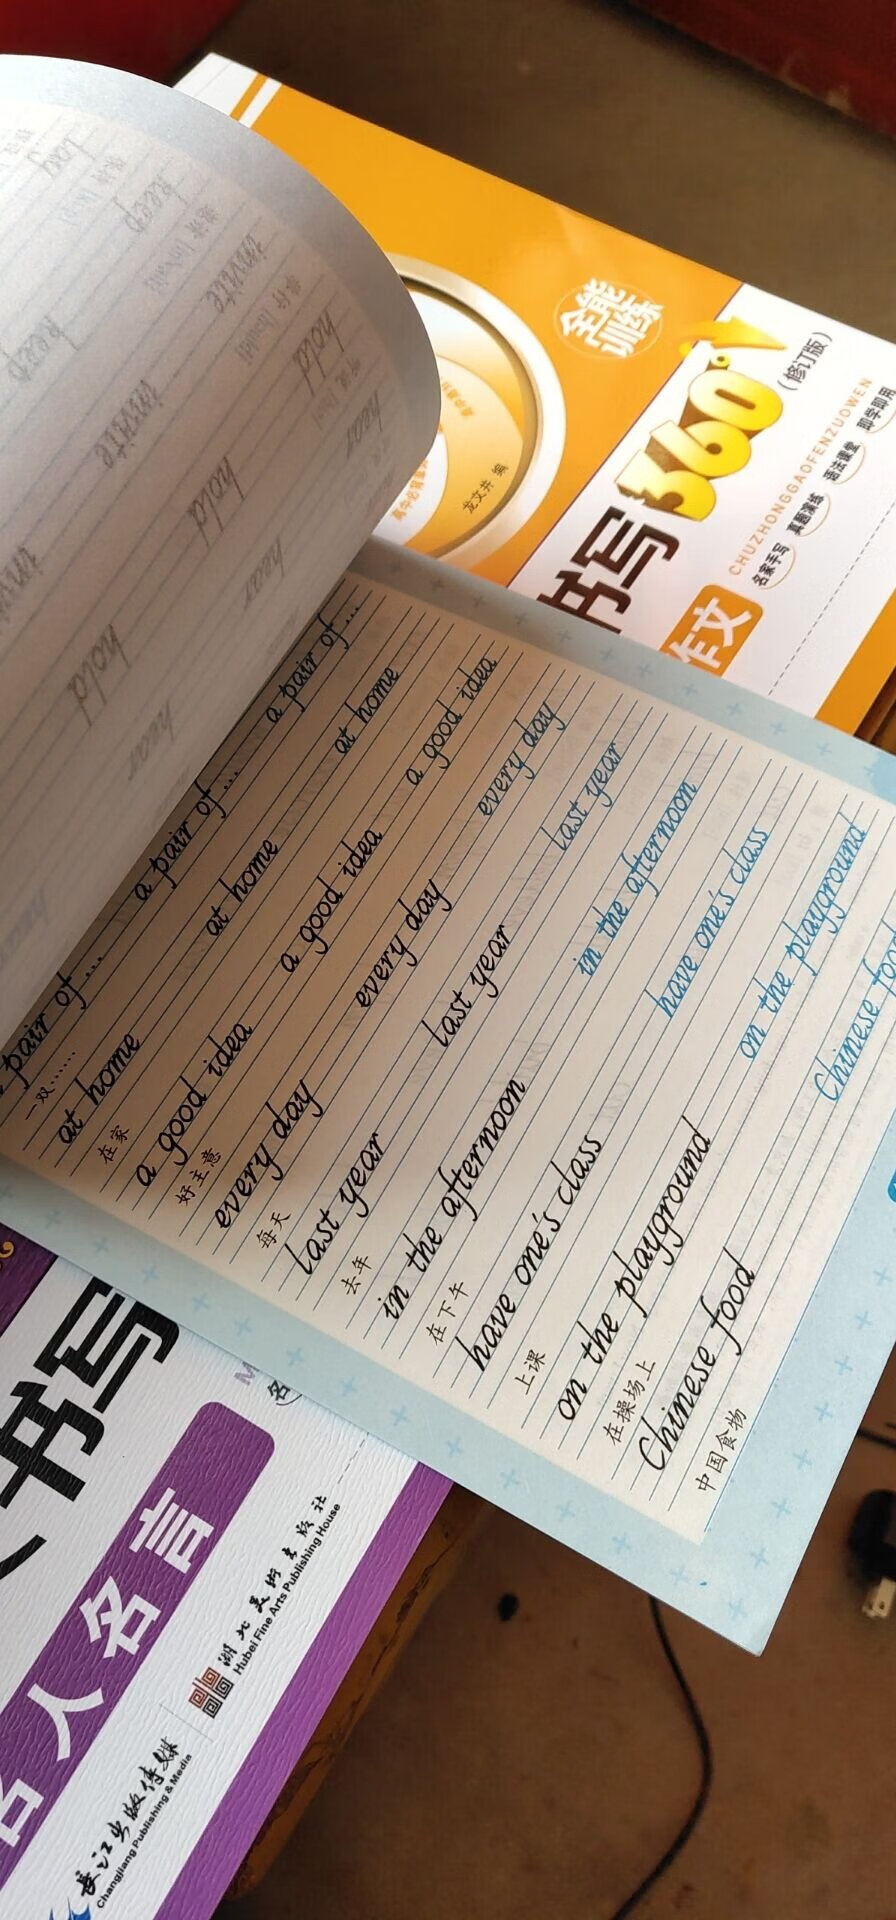 全能
训练
书写360°
(修订版)
CHUZHONGGAOFENZUOWEN
名家手写 真题演练 语法课堂 即学即用
作文
龙文井 编
keep
invite
hold
hear
keep
invite
hold
hear
hold
hear
pair of... a pair of... a pair of...
一双……
at home at home at home
在家
a good idea a good idea a good idea
好主意
every day every day every day
每天
last year last year last year
去年
in the afternoon in the afternoon
在下午
have one's class have one's class
上课
on the playground on the playground
在操场上
Chinese food Chinese
中国食物
书写
名人名言
湖北美术出版社
Hubei Fine Arts Publishing House
长江出版传媒
Changjiang Publishing & Media